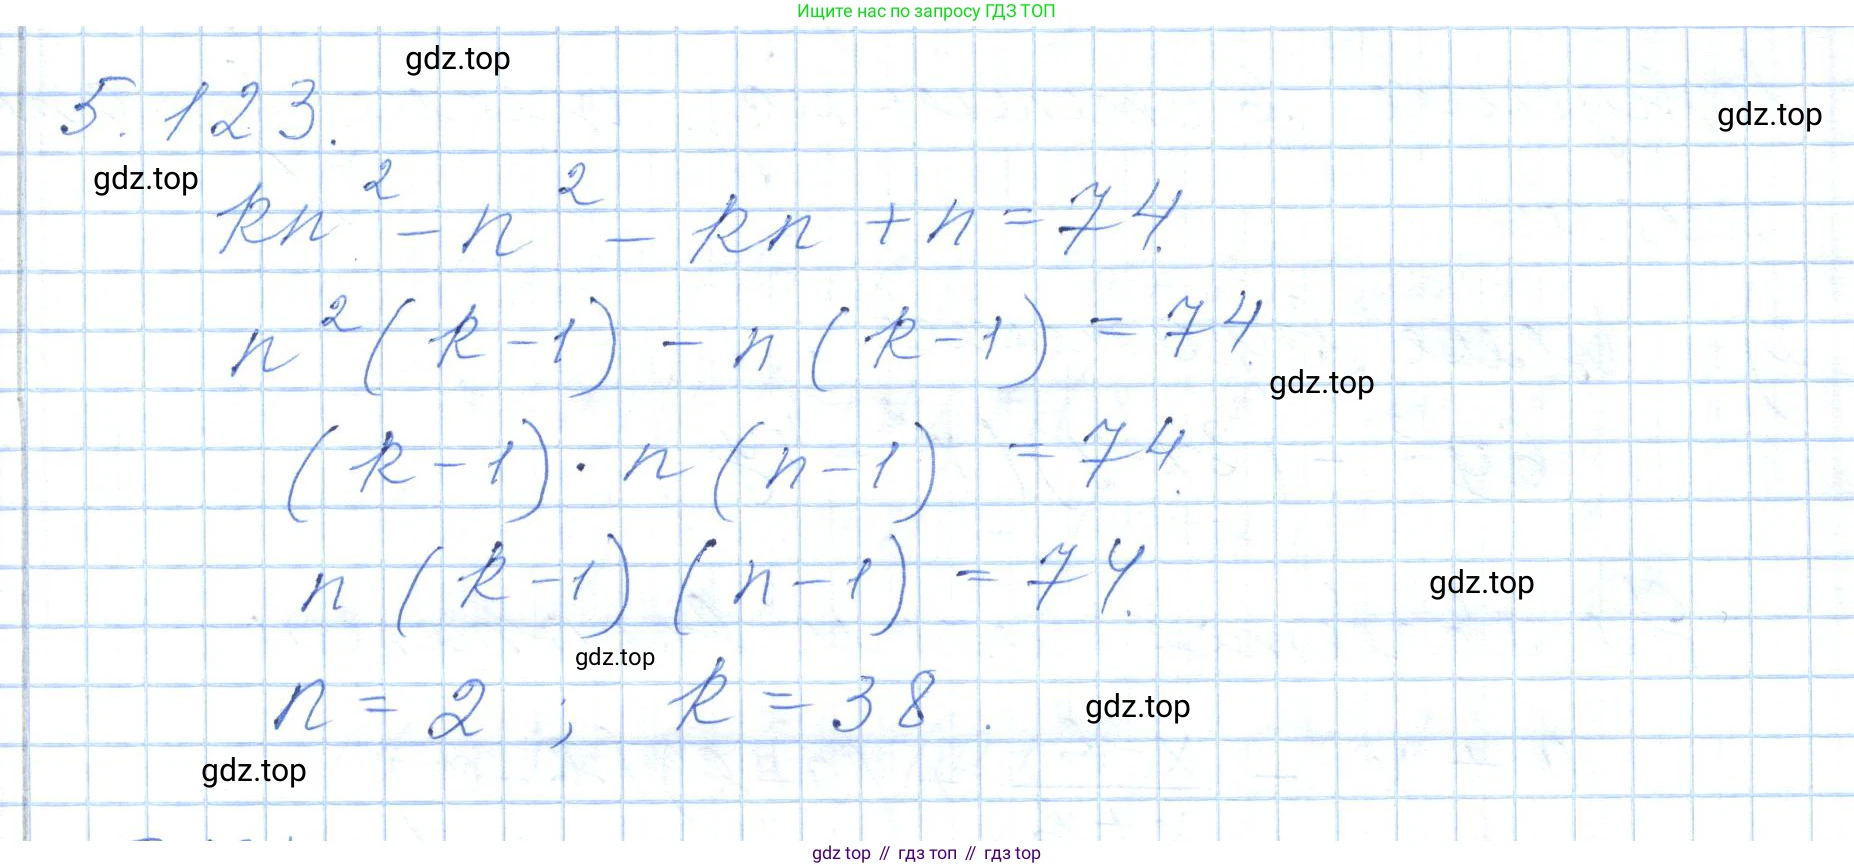 Ищите нас по запросу ГДЗ ТОП
gdz.top
5.123.
gdz.top
gdz.top
kn² - n² - kn + n = 74.
n²(k - 1) - n(k - 1) = 74.
gdz.top
(k - 1) · n(n - 1) = 74.
n(k - 1)(n - 1) = 74.
gdz.top
gdz.top
n = 2 ; k = 38 .
gdz.top
gdz.top
gdz top // гдз топ // гдз top